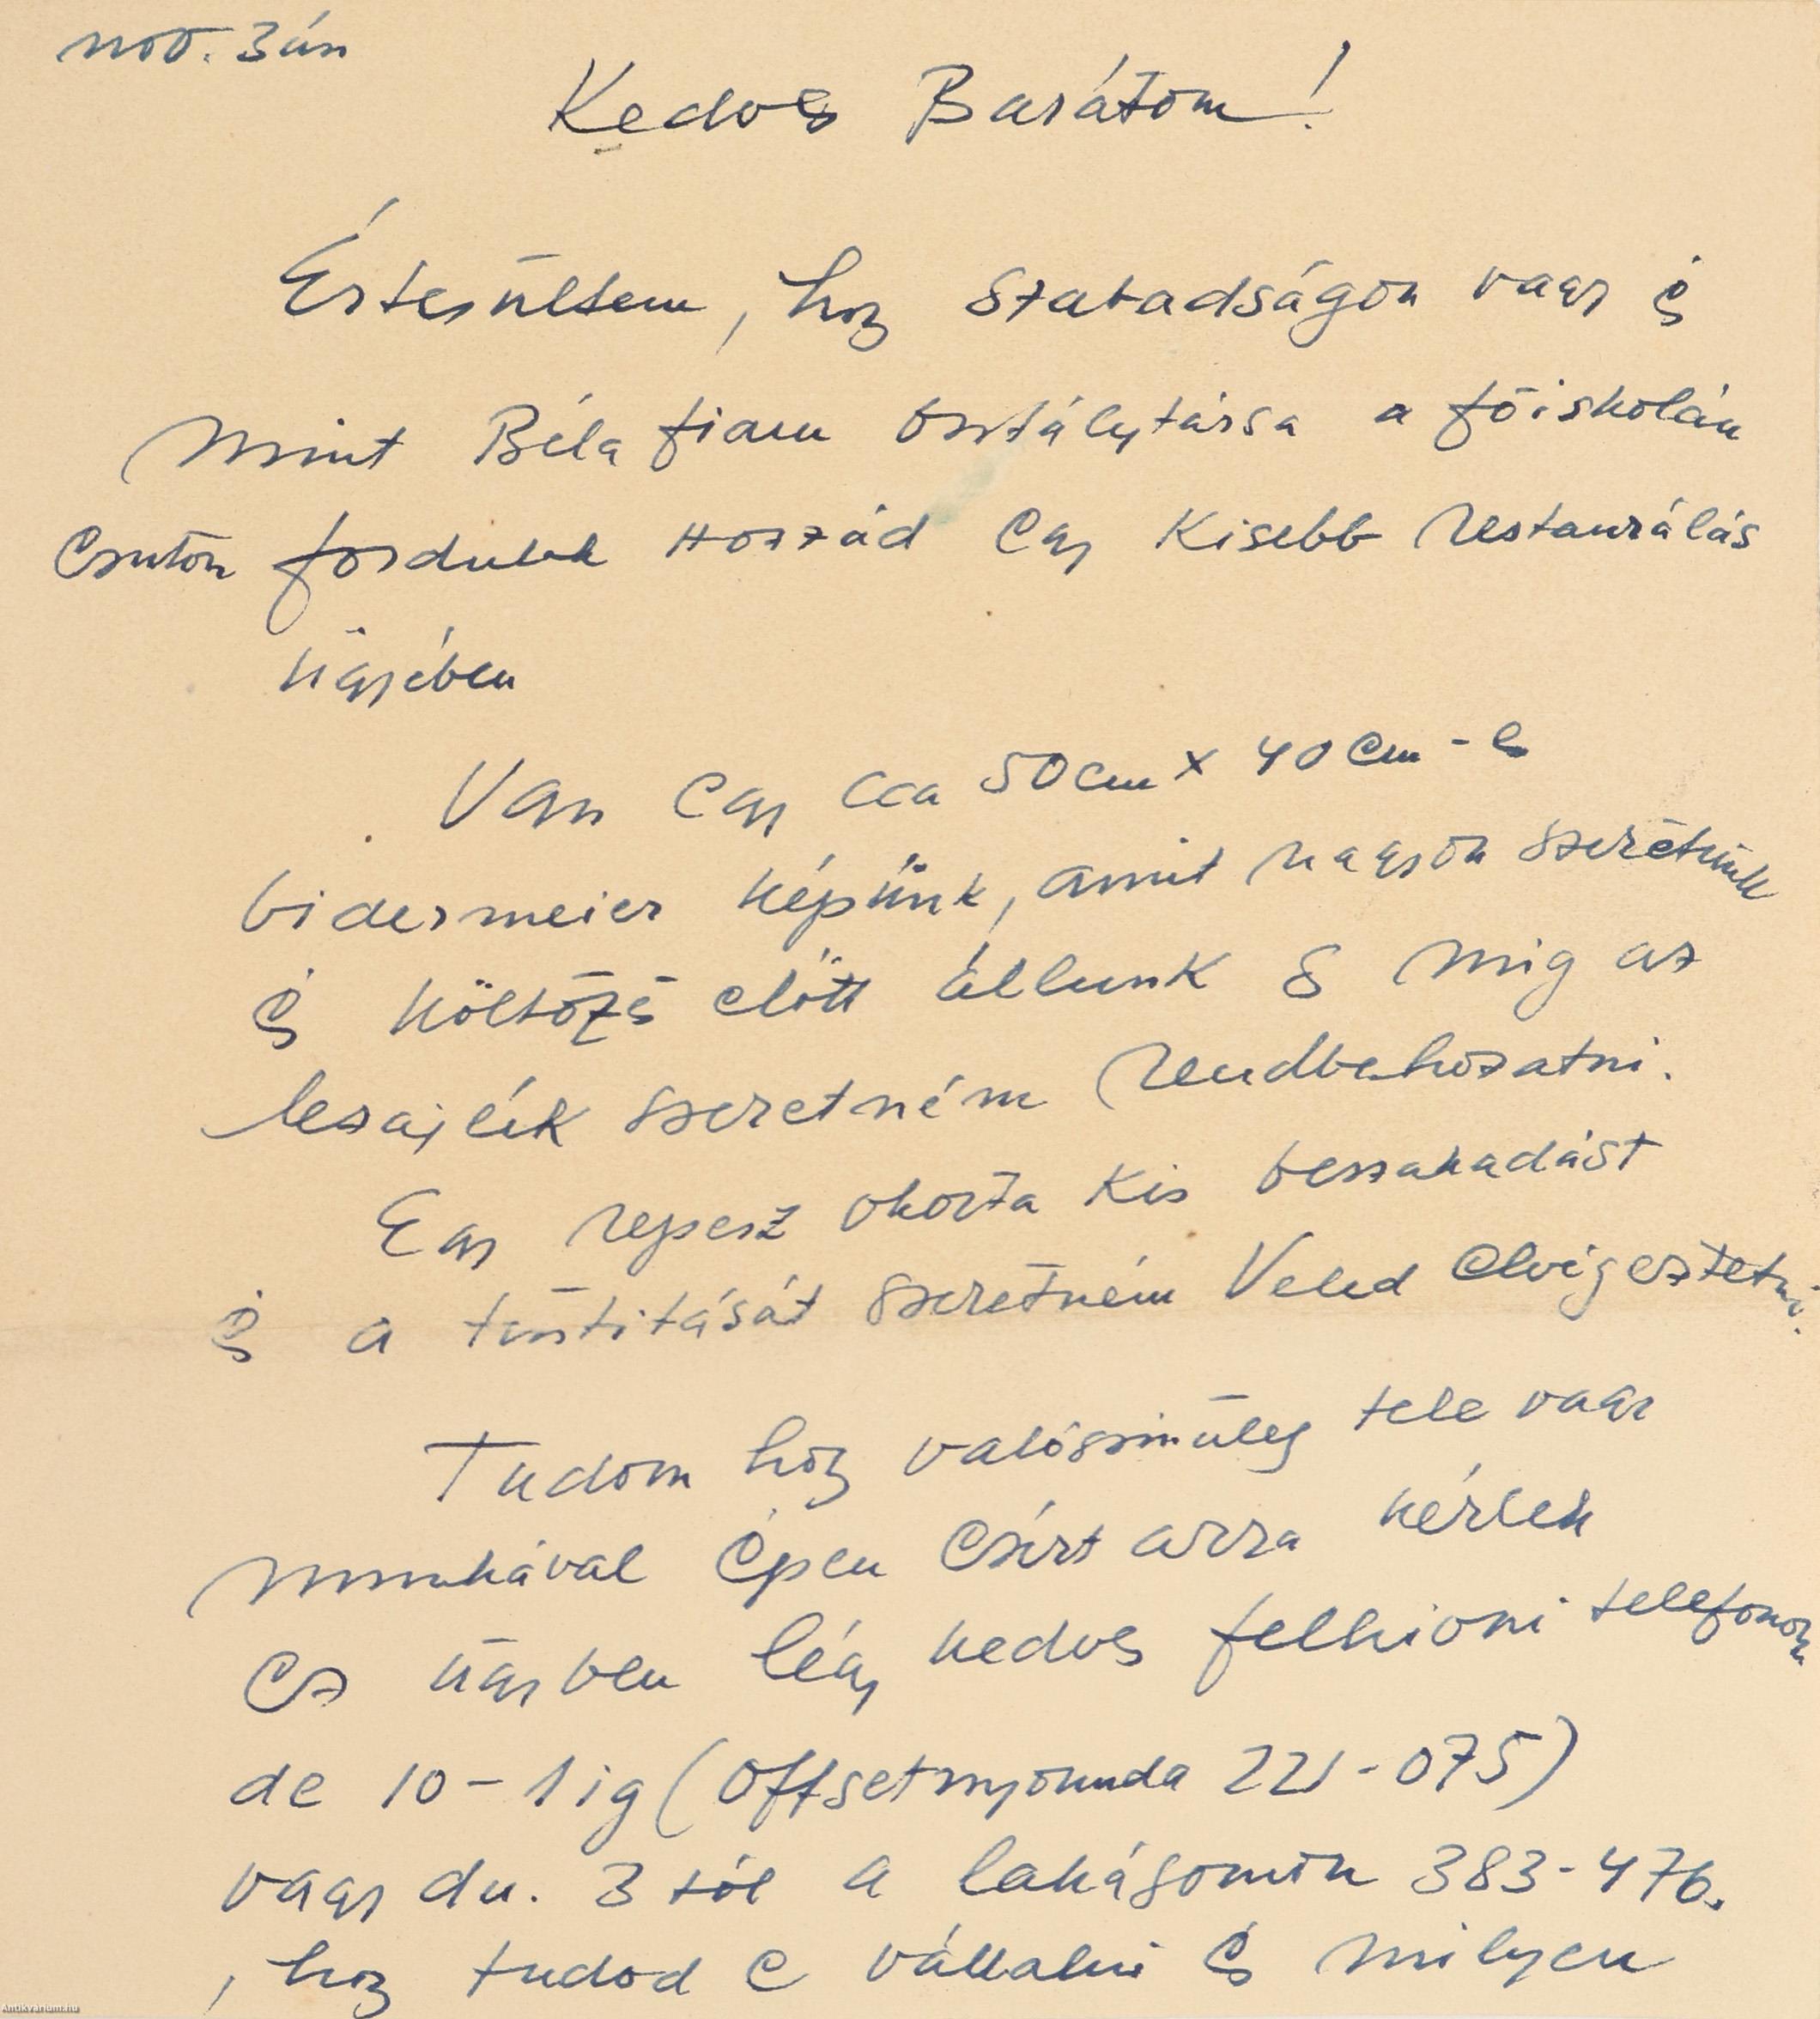 nov. 3án
Kedves Barátom!
Értesültem, hog szabadságon vagy és
mint Béla fiam osztálytársa a főiskolán
fordulok Hozzád egy Kisebb restaurálás
ügyében
Van egy cca 50cm x 40cm-s
bidermeier képünk, amit nagyon szeretünk
és költözés előtt állunk s mig az
lezajlik szeretném rendbehozatni.
Egy repesz okozta kis beszakadást
és a szeretném Veled elvégeztetni.
Tudom hog valószinűleg tele vagy
munkával épen ezért arra kérlek
ez ügyben légy kedves felhivni telefonon
de 10-1ig (Offsetnyomda 221-075)
vagy du. 3 tól a lakásomon 383-476.
, hog tudod e vállalni és milyen
Antikvarium.hu